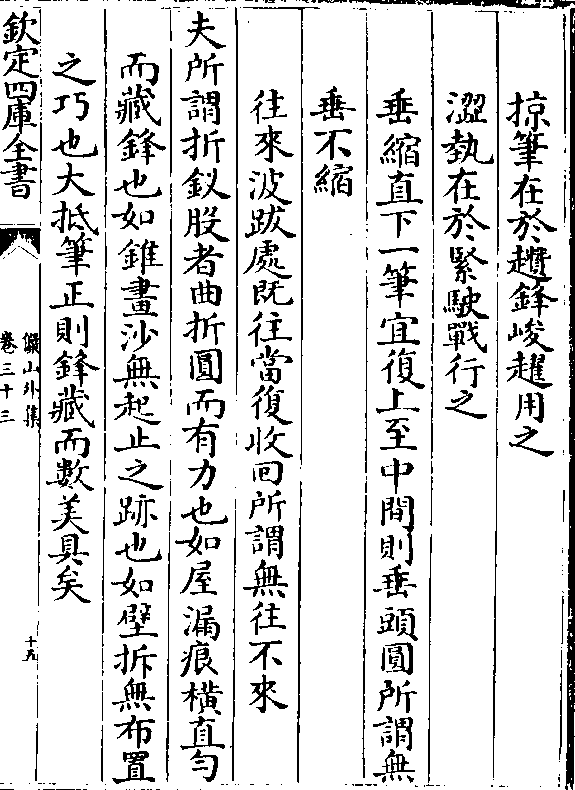 掠筆在於趲鋒峻趯用之
澀埶在於緊駛戰行之
垂縮直下一筆宜復上至中間則垂頭圓所謂無
垂不縮
往來波䟦處既往當復收回所謂無往不來
夫所謂折釵股者曲折圓而有力也如屋漏痕橫直勻
而藏鋒也如錐畫沙無起止之跡也如壁拆無布置
之巧也大抵筆正則鋒藏而數美具矣
欽定四庫全書
儼山外集
卷三十三
十五